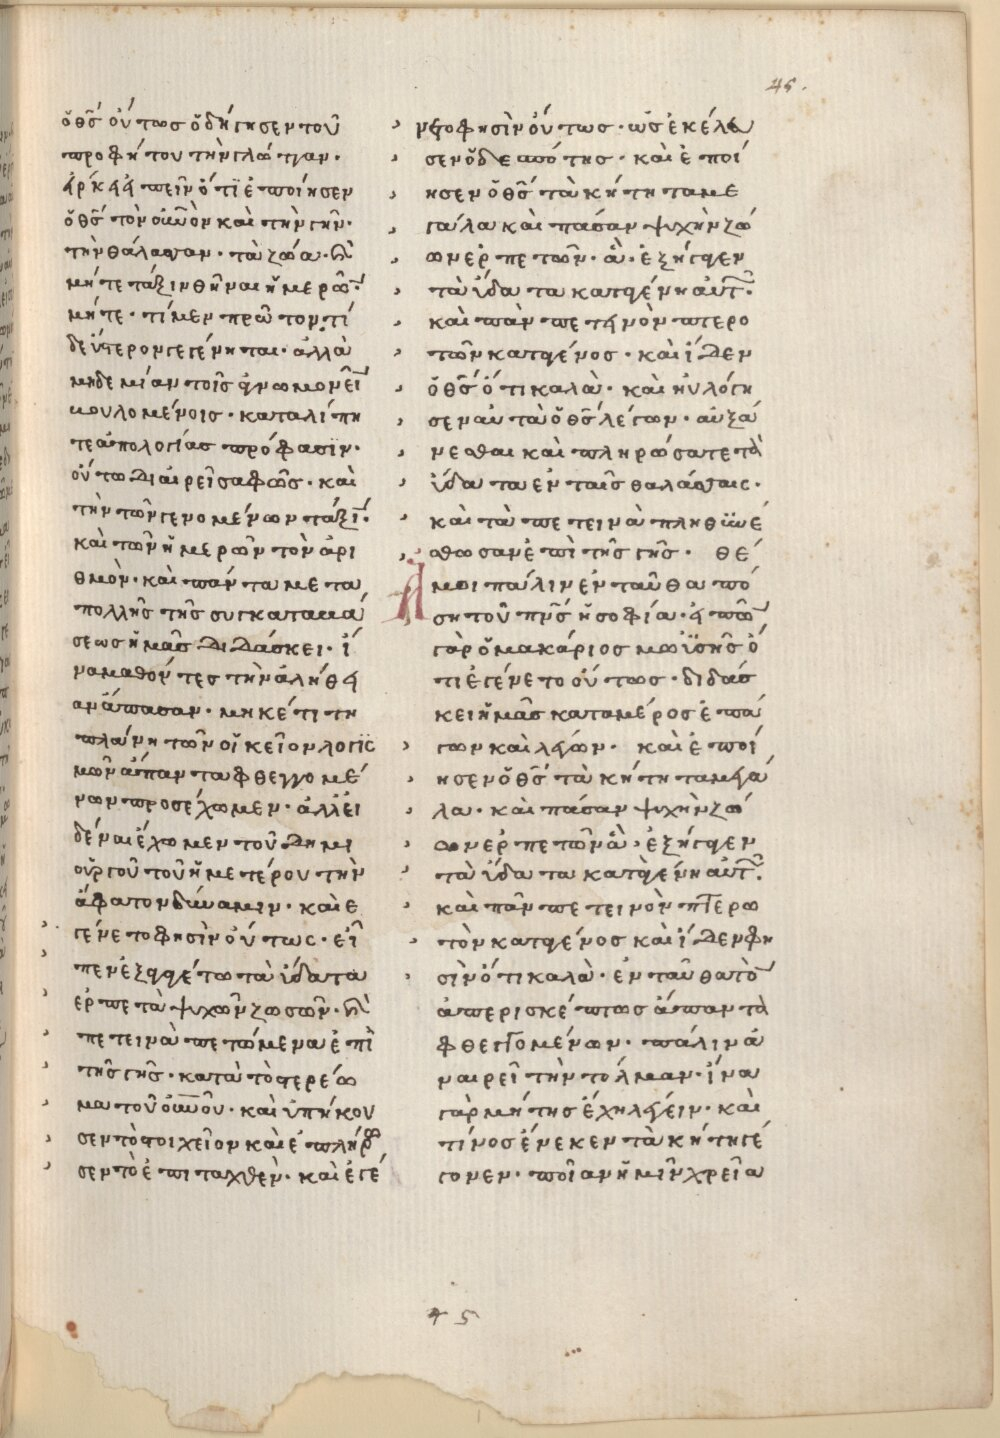 45.
ὁ θς̄ οὕτως ὁδήγησεν τοῦ
προφήτου τὴν γλῶτταν.
ἤρκει εἰπεῖν ὅτι ἐποίησεν
ὁ θς̄ τὸν οὐνὸν καὶ τὴν γῆν.
τὴν θάλασσαν. τὰ ζῶα. καὶ
μήτε τάξιν θῆναι ἡμερῶν.
μήτε. τί μὲν πρῶτον τί
δεύτερον γεγένηται. ἀλλὰ
μηδεμίαν τοῖς ἀγνωμονεῖν
βουλομένοις. καταλίπῃ
τε ἀπολογίας πρόφασιν.
οὕτω διαιρεῖ σαφῶς. καὶ
τὴν τῶν γενομένων τάξιν.
καὶ τῶν ἡμερῶν τὸν ἀρι
θμὸν. καὶ πάντα μετα
πολλῆς τῆς συγκαταβά
σεως ἡμᾶς διδάσκει. ἵ
να μαθόντες τὴν ἀλήθει
αν ἅπασαν. μηκέτι τῇ
πλάνῃ τῶν οἰκείον λογισ
μῶν ἅπαντα φθεγγομέ
νων προσέχωμεν. ἀλλ' εἰ
δέναι ἔχωμεν τοῦ δημι
ουργοῦ τοῦ ἡμετέρου τὴν
ἄφατον δύναμιν. καὶ ε
γένετο φησὶν οὕτως. εἶ
πεν ἐξαγαγέτω τὰ ὕδατα
ἑρπετὰ ψυχῶν ζωσῶν. καὶ
πετεινὰ πετώμενα ἐπὶ
τῆς γῆς. κατὰ τὸ στερέω
μα τοῦ οὐνοῦ. καὶ ὑπήκου
σεν τὸ στοιχεῖον καὶ ἐπλήρω
σεν τὸ ἐπιταχθὲν. καὶ ἐγέ
νετο φησὶν οὕτως. ὡς ἐκέλευ
σεν ὁ δεσπότης. καὶ ἐποί
ησεν ὁ θς̄ τὰ κήτη τὰ με
γάλα καὶ πάσαν ψυχὴν ζώ
ων ἑρπετῶν. ἃ. ἐξήγαγεν
τὰ ὕδατα κατα γένη αὐτῶν.
καὶ πὰν πετεινὸν πτερο
τῶν κατα γένος. καὶ ἴδεν
ὁ θς̄ ὅτι καλὰ. καὶ ηὐλόγη
σεν αὐτὰ ὁ θς̄ λέγων. αὐξά
νεσθαι καὶ πληρώσατε τὰ
ὕδατα ἐν ταῖς θαλάσσαις.
καὶ τὰ πετεινὰ πληθυνέ
σθωσαν ἐπὶ τῆς γῆς. θέ
Α μοι πάλιν ἐνταῦθα πό
ση τοῦ πνς̄ ἡ σοφία. εἰπὼν
γὰρ ὁ μακάριος μωϋσῆς ὅ
τι ἐγένετο οὕτως. διδάσ
κει ἡμᾶς καταμέρος ἐπά
γων καὶ λέγων. καὶ ἐποί
ησεν ὁ θς̄ τὰ κήτη τὰ μεγά
λα. καὶ πάσαν ψυχὴν ζώ
ων ἑρπετῶν ἃ. ἐξήγαγεν
τὰ ὕδατα κατα γένη αὐτῶν.
καὶ πᾶν πετεινὸν πτερω
τὸν κατα γένος καὶ ἴδεν φη
σὶν ὅτι καλὰ. ἐνταῦθα τὸν
ἀπερισκέπτως ἅπαντα
φθεγγομένων. πάλιν ἀ
ναιρεῖ τὴν τόλμαν. ἵνα
γὰρ μή της ἔχῃ λέγειν. καὶ
τίνος ἕνεκεν τὰ κήτη γέ
γονεν. ποίαν ἡμῖν χρεία
45